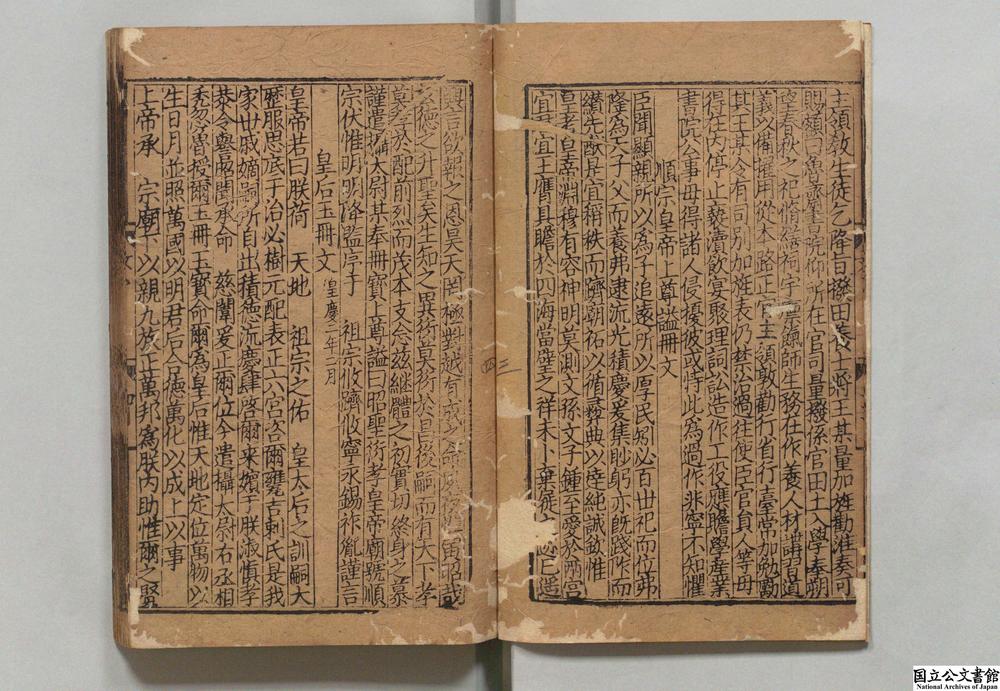 主領敎生徒乞降旨撥田養士將王某量加旌勸准奏可
賜額曰魯齋書院仰所在官司量撥係官田土入學奉朔
望春秋之祀脩繕祠宇廩師生務在作養人材講習道
義以備擢用從本路正官主領敦勸行省行臺常加勉勵
其王某令有司別加旌表仍禁治過往使臣官員人等毋
得在內停止褻瀆飲宴聚理詞訟造作工役應贍學產業
書院公事毋得諸人侵擾彼或恃此為過作非寧不知懼
順宗皇帝上尊謚冊文
臣聞顯親所以為子追遠所以厚民矧必百世祀而位弗
隆為天子父而養弗逮流光積慶爰集眇躬亦既踐作而
纘先猷是宜稱秩而躋朝祏以循彞典以倥純誠欽惟
皇考皇帝淵穆有容神明莫測文孫文子鍾至愛於兩宮
宜君宜王膺具瞻於四海當璧之祥未卜棄屣之遐
興言欲報之恩昊天罔極對越有成之命
文德之升聖矣生知之異衍莫衍於昌後嗣而有天下孝
莫孝於配前烈而茂本支念茲繼體之初實切終身之慕
謹遣攝太尉某奉冊寶上尊謚曰昭聖衍孝皇帝廟號順
宗伏惟明明洚監序于 祖宗攸躋攸寧永錫祚胤謹言
皇后玉冊文 皇慶二年三月
皇帝若曰朕荷 天地 祖宗之佑 皇太后之訓嗣大
歷服思底于治必樹元配表正六宮咨爾甕吉剌氏是我
家世戚嫡嗣所自出積德流慶肆啓爾來嬪于朕淑慎孝
恭令譽昭聞承命 慈闈爰正爾位今遣攝太尉右丞相
禿忽魯授爾玉冊玉寶命爾為皇后惟天地定位萬物以
生日月並照萬國以明君后合德萬化以成上以事
上帝承 宗廟 以親九族正萬邦為朕內助惟爾之賢
国立公文書館
National Archives of Japan